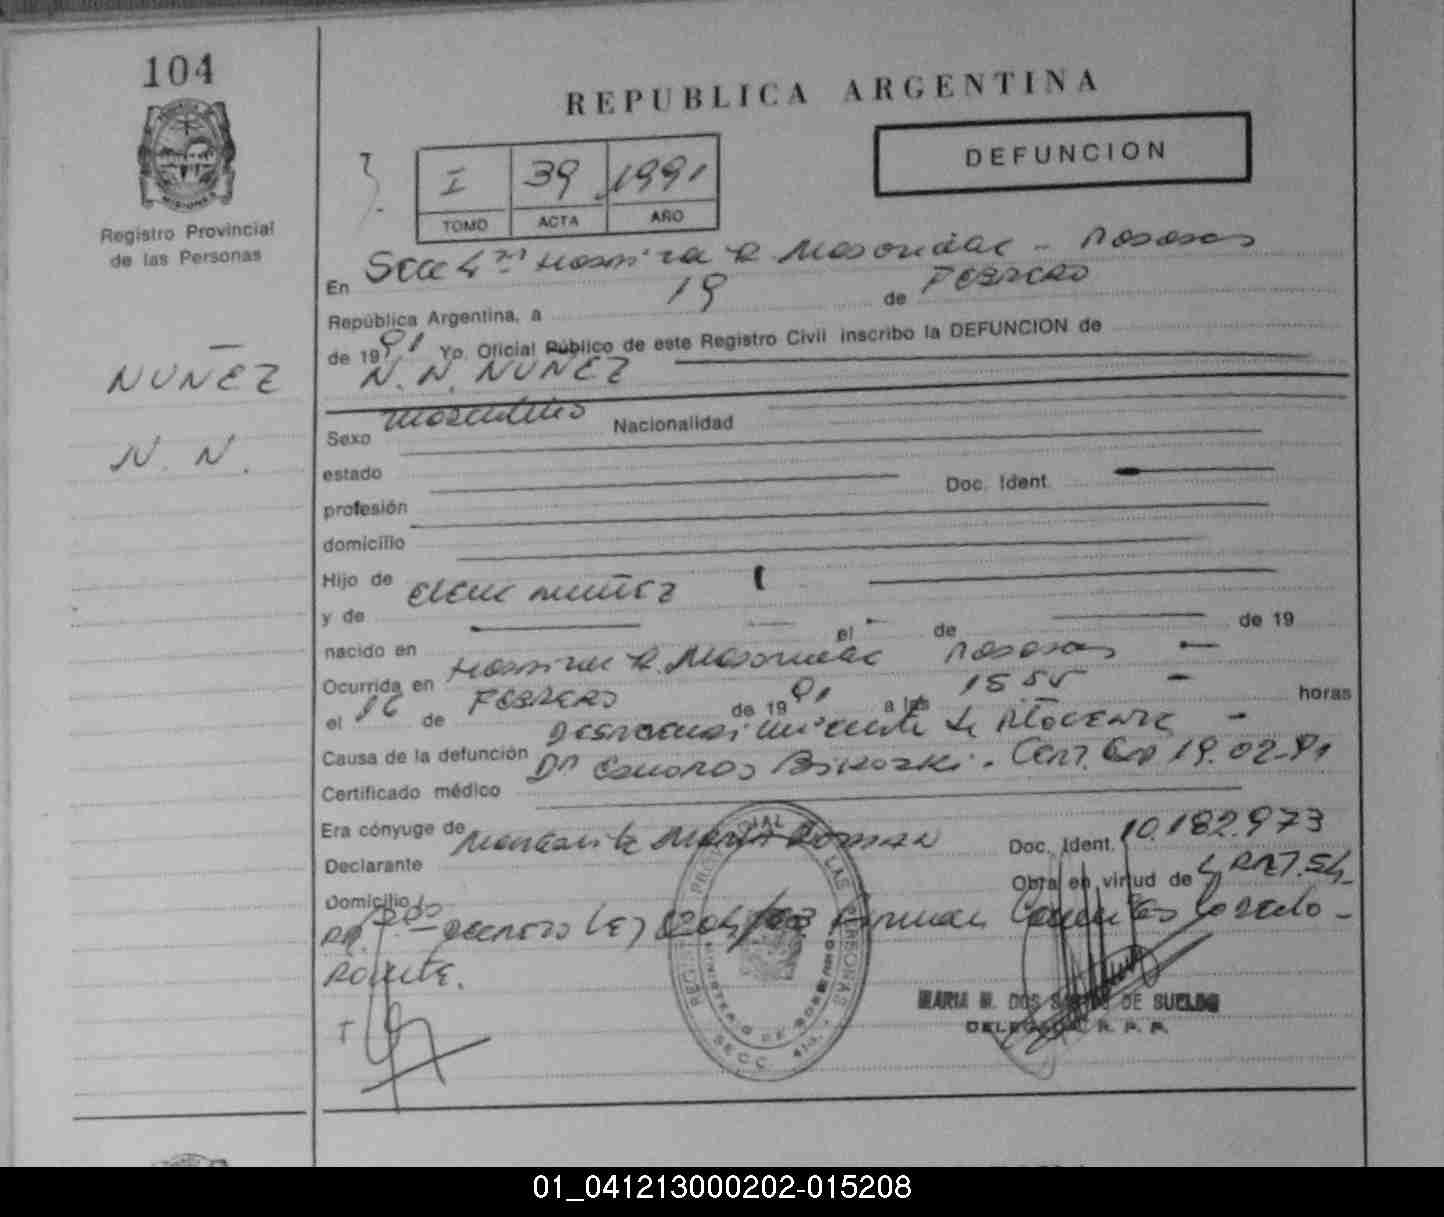 104
REPUBLICA ARGENTINA
DEFUNCION
I 39 1991
TOMO ACTA AÑO
Registro Provincial
de las Personas
MISIONES
En Secc 4ta Hospital R. Madariaga - Posadas
República Argentina, a 19 de FEBRERO
de 1991 Yo, Oficial Público de este Registro Civil inscribo la DEFUNCION de
NUÑEZ
N. N.
N. N. NUÑEZ
Sexo masculino Nacionalidad
estado
profesión Doc. Ident.
domicilio
Hijo de Elena Nuñez
y de
nacido en el de de 19
Ocurrida en Hospital R. Madariaga Posadas
el 16 de FEBRERO de 1991 a las 15 55 horas
Causa de la defunción Desprendimiento de Placenta
Certificado médico Dr Cert. 19.02.91
Era cónyuge de
Declarante Margarita Doc. Ident. 10.182.973
Domicilio Obra en virtud de
Decreto Ley 8204/63
MARIA DOS DE SUELDO
DELEGADA R. P. P.
01_041213000202-015208